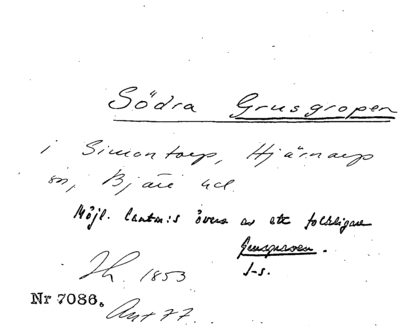 Södra Grusgropen
i Simontorp, Hjärnarp
sn, Bjäre hd.
Möjl. lantm:s övers av ett folkligare
Grusgraven.
J-s.
Jh 1853
Nr 7086. Ant 77.